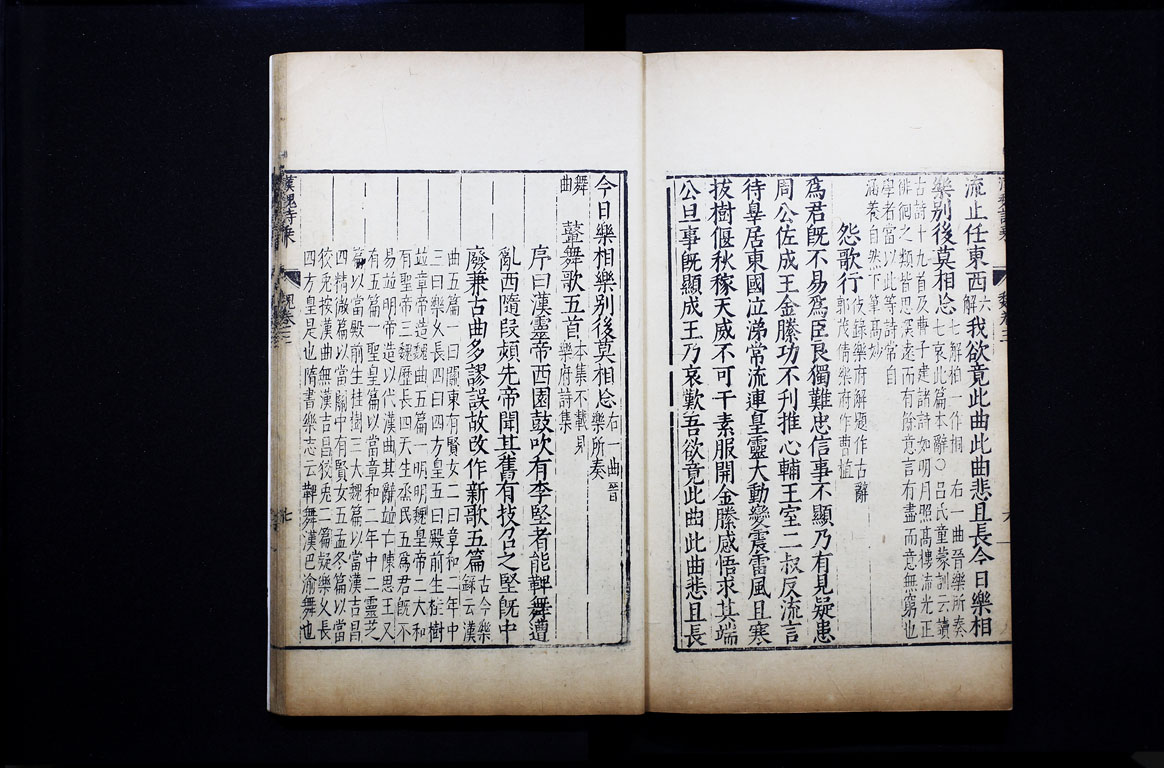 流止任東西六解我欲竟此曲此曲悲且長今日樂相
樂別後莫相忘七解柏一作桐 右一曲晉樂所奏
七哀此篇本辭○呂氏童蒙訓云讀
古詩十九首及曹子建諸詩如明月照高樓流光正
徘徊之類皆思深遠而有餘意言有盡而意無窮也
學者當以此等詩常自
涵養自然下筆高妙
怨歌行伎錄樂府解題作古辭
郭茂倩樂府作曹植
爲君旣不易爲臣良獨難忠信事不顯乃有見疑患
周公佐成王金縢功不刋推心輔王室二叔反流言
待辠居東國泣涕常流連皇靈大動變震雷風且寒
拔樹偃秋稼天威不可干素服開金縢感悟求其端
公旦事旣顯成王乃哀歎吾欲竟此曲此曲悲且長
今日樂相樂別後莫相忘右一曲晉
樂所奏
舞曲
鼙舞歌五首本集不載見
樂府詩集
序曰漢靈帝西園鼓吹有李堅者能鞞舞遭
亂西隨段熲先帝聞其舊有技召之堅旣中
廢兼古曲多謬誤故改作新歌五篇古今樂
錄云漢
曲五篇一曰關東有賢女二曰章和二年中
三曰樂久長四曰四方皇五曰殿前生桂樹
竝章帝造魏曲五篇一明明魏皇帝二大和
有聖帝三魏歷長四天生烝民五爲君旣不
易竝明帝造以代漢曲其辭竝亡陳思王又
有五篇一聖皇篇以當章和二年中二靈芝
篇以當殿前生桂樹三大魏篇以當漢吉昌
四精微篇以當關中有賢女五孟冬篇以當
狡兔按漢曲無漢吉昌狡兔二篇疑樂久長
四方皇是也隋書樂志云鞞舞漢巴渝舞也
漢魏詩乘
魏卷三
七